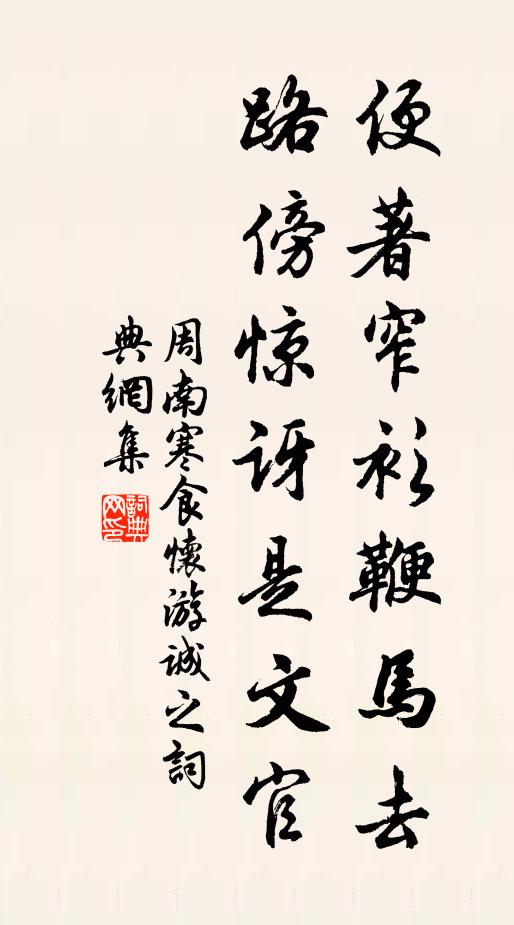 便著窄衫鞭馬去
路傍惊讶是文官
周南寒食懷游誠之詞
典網集
詞典
网印